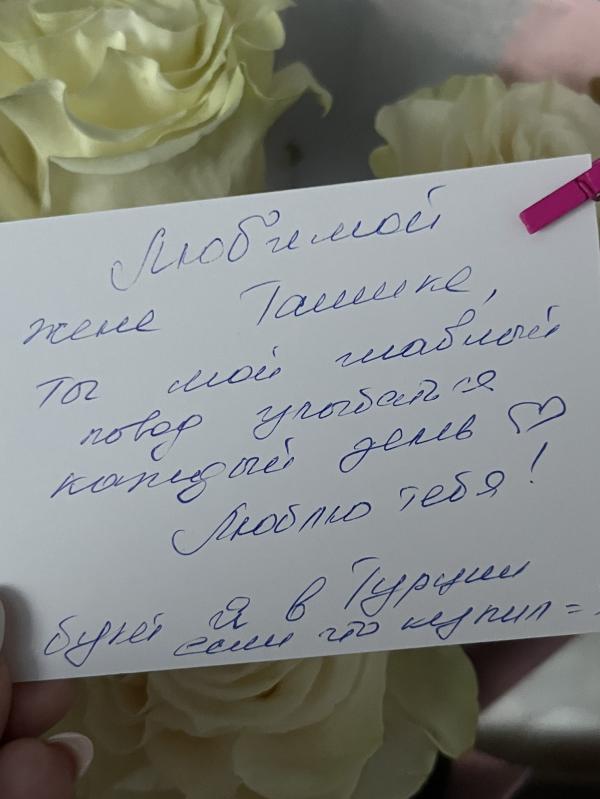 Любимой
жене Ташике,
ты мой главный
повод улыбаться
каждый день ♡
Люблю тебя!
букет я в Турции
если что купил =